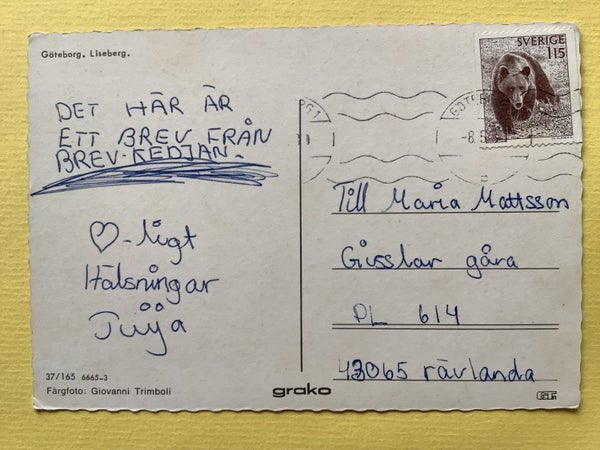 Göteborg. Liseberg.
SVERIGE
115
DET HÄR ÄR
ETT BREV FRÅN
BREV-KEDJAN.
♡-ligt
Hälsningar
Till Maria Mattsson
Gisslar gåra
PL 614
43065 rävlanda
37/165 6665-3
Färgfoto: Giovanni Trimboli
grako